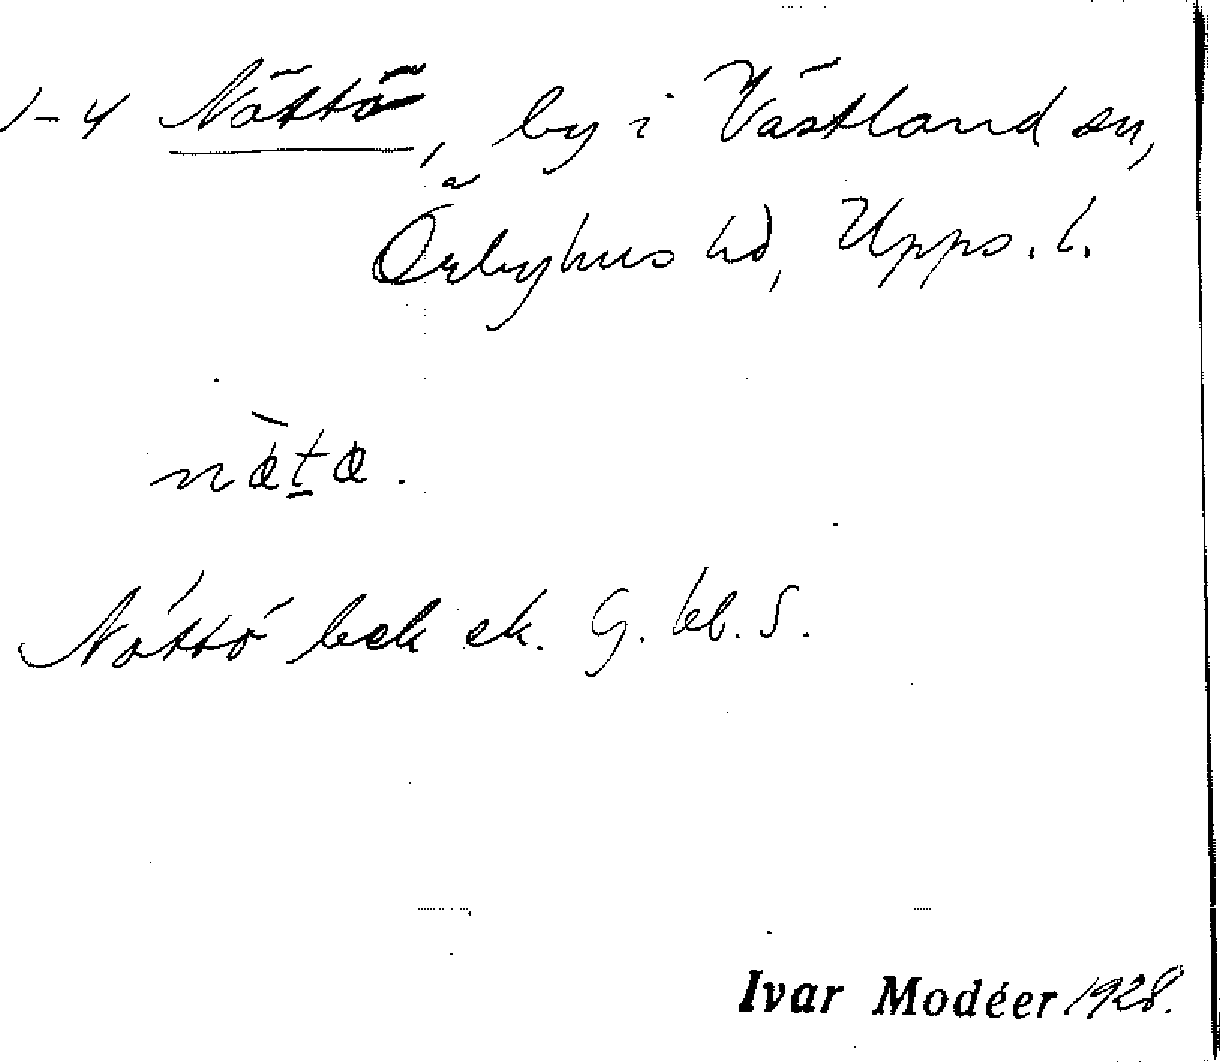 1-4 Nöttö, by i Västland sn,
Örbyhus hd, Upps. l.
nø̀t̠ø.
Nöttö bek ek. G. kb. S.
Ivar Modéer 1928.